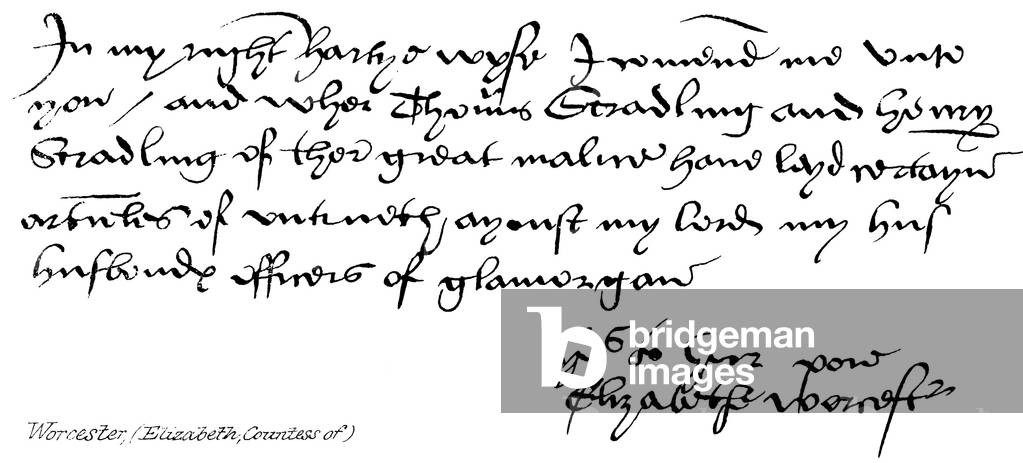 In my right hartye wyse I comend me vnto
you / and wher Thomas Stradling and henry
Stradling of ther great malice haue leyd certayn
articles of vntrueth, ayenst my lord my hus
husbondꝭ officers of glamorgan
your
Elizabeth Worcestr
Worcester, (Elizabeth, Countess of)
bridgeman
images